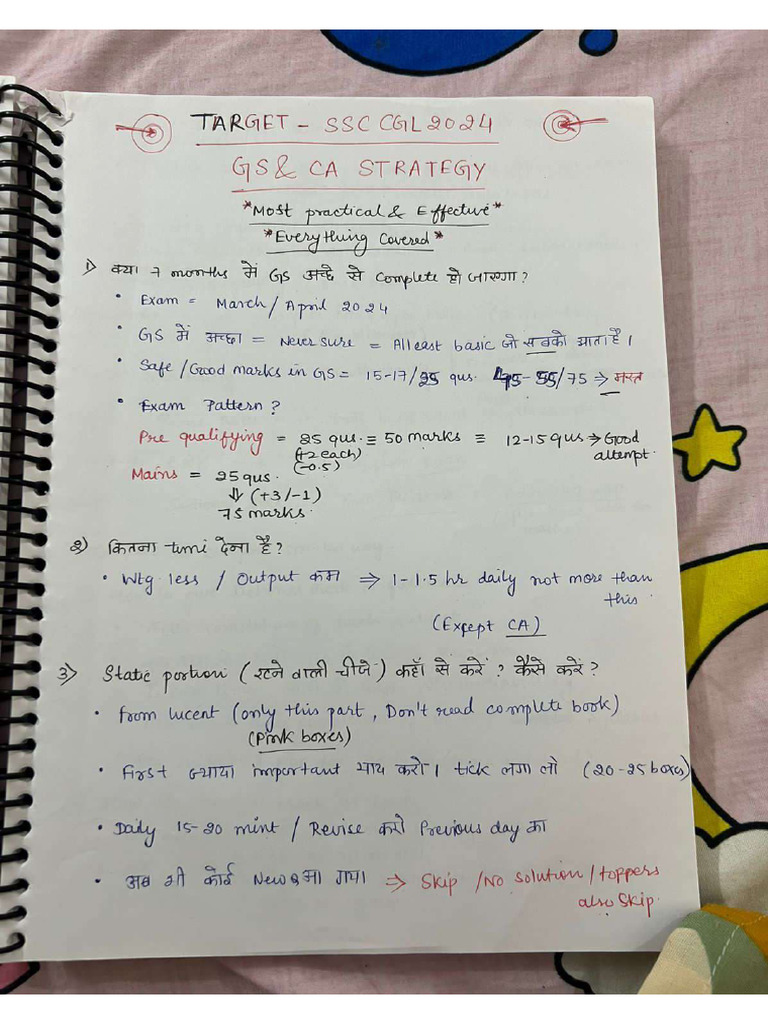 TARGET - SSC CGL 2024
GS & CA STRATEGY
*Most practical & Effective*
*Everything Covered*
1) क्या 7 months में GS अच्छे से complete हो जाएगा?
• Exam = March/April 2024
• GS में अच्छा = Never sure = Atleast basic जो सबको आता है।
• Safe/Good marks in GS = 15-17/25 qus. 45-55/75 ⇒ मस्त
• Exam Pattern?
Pre qualifying = 25 qus. ≡ 50 marks ≡ 12-15 qus → Good
(+2 each) attempt.
(-0.5)
Mains = 25 qus.
⇓ (+3/-1)
75 marks.
2) कितना timi देना है?
• Wtg less / Output कम ⇒ 1-1.5 hr daily not more than
this.
(Except CA)
3) Static portion (रटने वाली चीजे) कहाँ से करें? कैसे करें?
• from lucent (only this part, Don't read complete book)
(Pink boxes)
• First ज्यादा important याद करो। tick लगा लो (20-25 boxes)
• Daily 15-20 mint / Revise करो Previous day का
• अब भी कोई New Q आ गया ⇒ Skip /No solution/toppers
also skip.